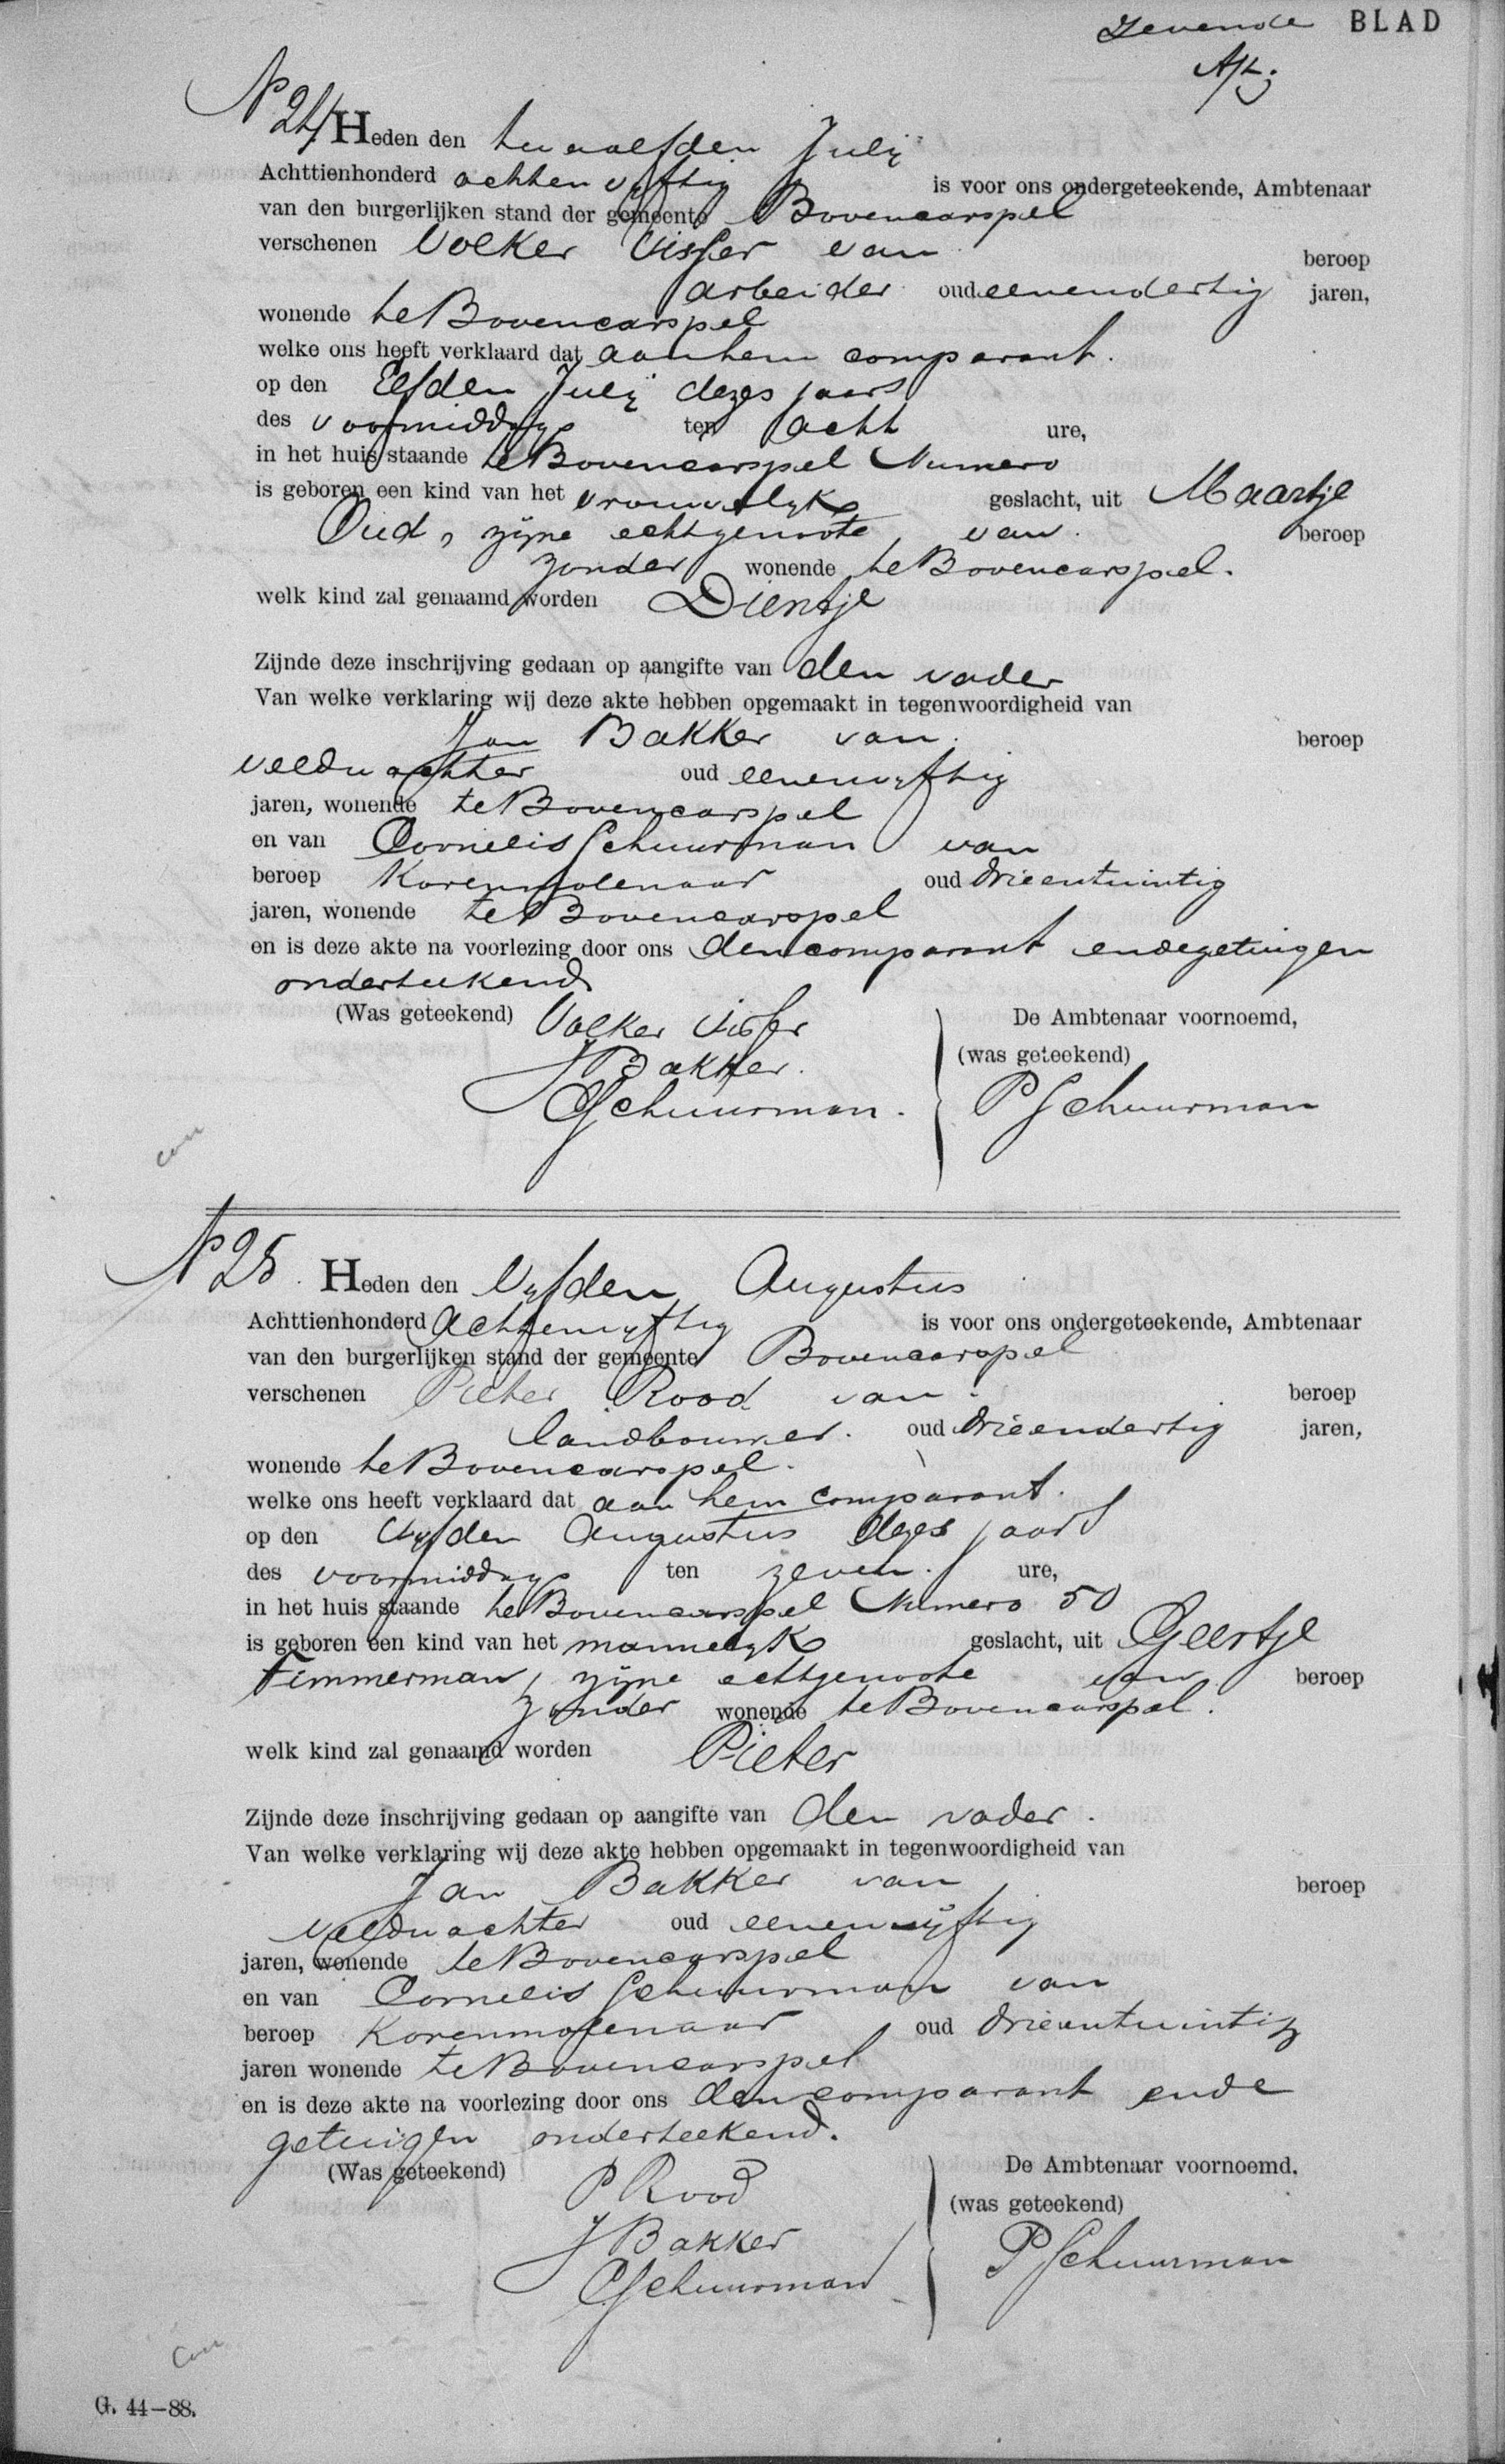 Zevende BLAD
N 24 Heden den twaalfden Julij
Achttienhonderd achtenvyftig is voor ons ondergeteekende, Ambtenaar
van den burgerlijken stand der gemeente Bovencarspel
verschenen Volker Visser van beroep
arbeider oud eenendertig jaren,
wonende te Bovencarspel
welke ons heeft verklaard dat aan hem comparant.
op den Elfden Julij dezes jaars
des voormiddags ten acht ure,
in het huis staande te Bovencarspel Numero
is geboren een kind van het vrouwelyke geslacht, uit Maartje
Oud, zijne echtgenoote van beroep
zonder wonende te Bovencarspel.
welk kind zal genaamd worden Dientje
Zijnde deze inschrijving gedaan op aangifte van den vader
Van welke verklaring wij deze akte hebben opgemaakt in tegenwoordigheid van
Jan Bakker van beroep
veldwachter oud eenenvyftig
jaren, wonende te Bovencarspel
en van Cornelis Schuurman van
beroep Korenmolenaar oud drieentwintig
jaren, wonende te Bovencarspel
en is deze akte na voorlezing door ons den comparant en de getuigen
onderteekend
(Was geteekend) Volker Visser De Ambtenaar voornoemd,
J Bakker. (was geteekend)
C Schuurman. P Schuurman
N 25. Heden den Vyfden Augustus
Achttienhonderd Achtenvyftig is voor ons ondergeteekende, Ambtenaar
van den burgerlijken stand der gemeente Bovencarspel
verschenen Pieter Rood van beroep
landbouwer. oud drieendertig jaren,
wonende te Bovencarspel.
welke ons heeft verklaard dat aan hem comparant.
op den Vyfden Augustus dezes jaars
des voormiddags ten zeven. ure,
in het huis staande te Bovencarspel Numero 50
is geboren een kind van het mannelyke geslacht, uit Geertje
Timmerman, zijne echtgenoote van beroep
zonder wonende te Bovencarspel.
welk kind zal genaamd worden Pieter
Zijnde deze inschrijving gedaan op aangifte van den vader.
Van welke verklaring wij deze akte hebben opgemaakt in tegenwoordigheid van
Jan Bakker van beroep
veldwachter oud eenenvijftig
jaren, wonende te Bovencarspel
en van Cornelis Schuurman van
beroep Korenmolenaar oud drieentwintig
jaren wonende te Bovencarspel
en is deze akte na voorlezing door ons den comparant en de
getuigen onderteekend.
(Was geteekend) P Rood De Ambtenaar voornoemd.
J Bakker (was geteekend)
C Schuurman P Schuurman
G. 44-88.